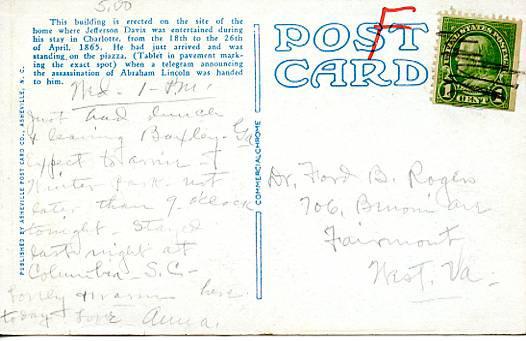 5.00
This building is erected on the site of the
home where Jefferson Davis was entertained during
his stay in Charlotte, from the 18th to the 26th
of April, 1865. He had just arrived and was
standing on the piazza, (Tablet in pavement mark-
ing the exact spot) when a telegram announcing
the assassination of Abraham Lincoln was handed
to him.
Wed - 1 - P.M.
Just had lunch
& leaving Baxley - Ga
expect to arrive at
Winter Park not
later than 9 o'clock
tonight - Stayed
last night at
Columbia - S.C -
Lovely & warm here
today Love Anna.
PUBLISHED BY ASHEVILLE POST CARD CO., ASHEVILLE, N. C.
COMMERCIALCHROME
POST
CARD
5
UNITED STATES POSTAGE
1 CENT 1
Dr. Ford B. Rogers
706, Ave
Fairmont
West. Va -